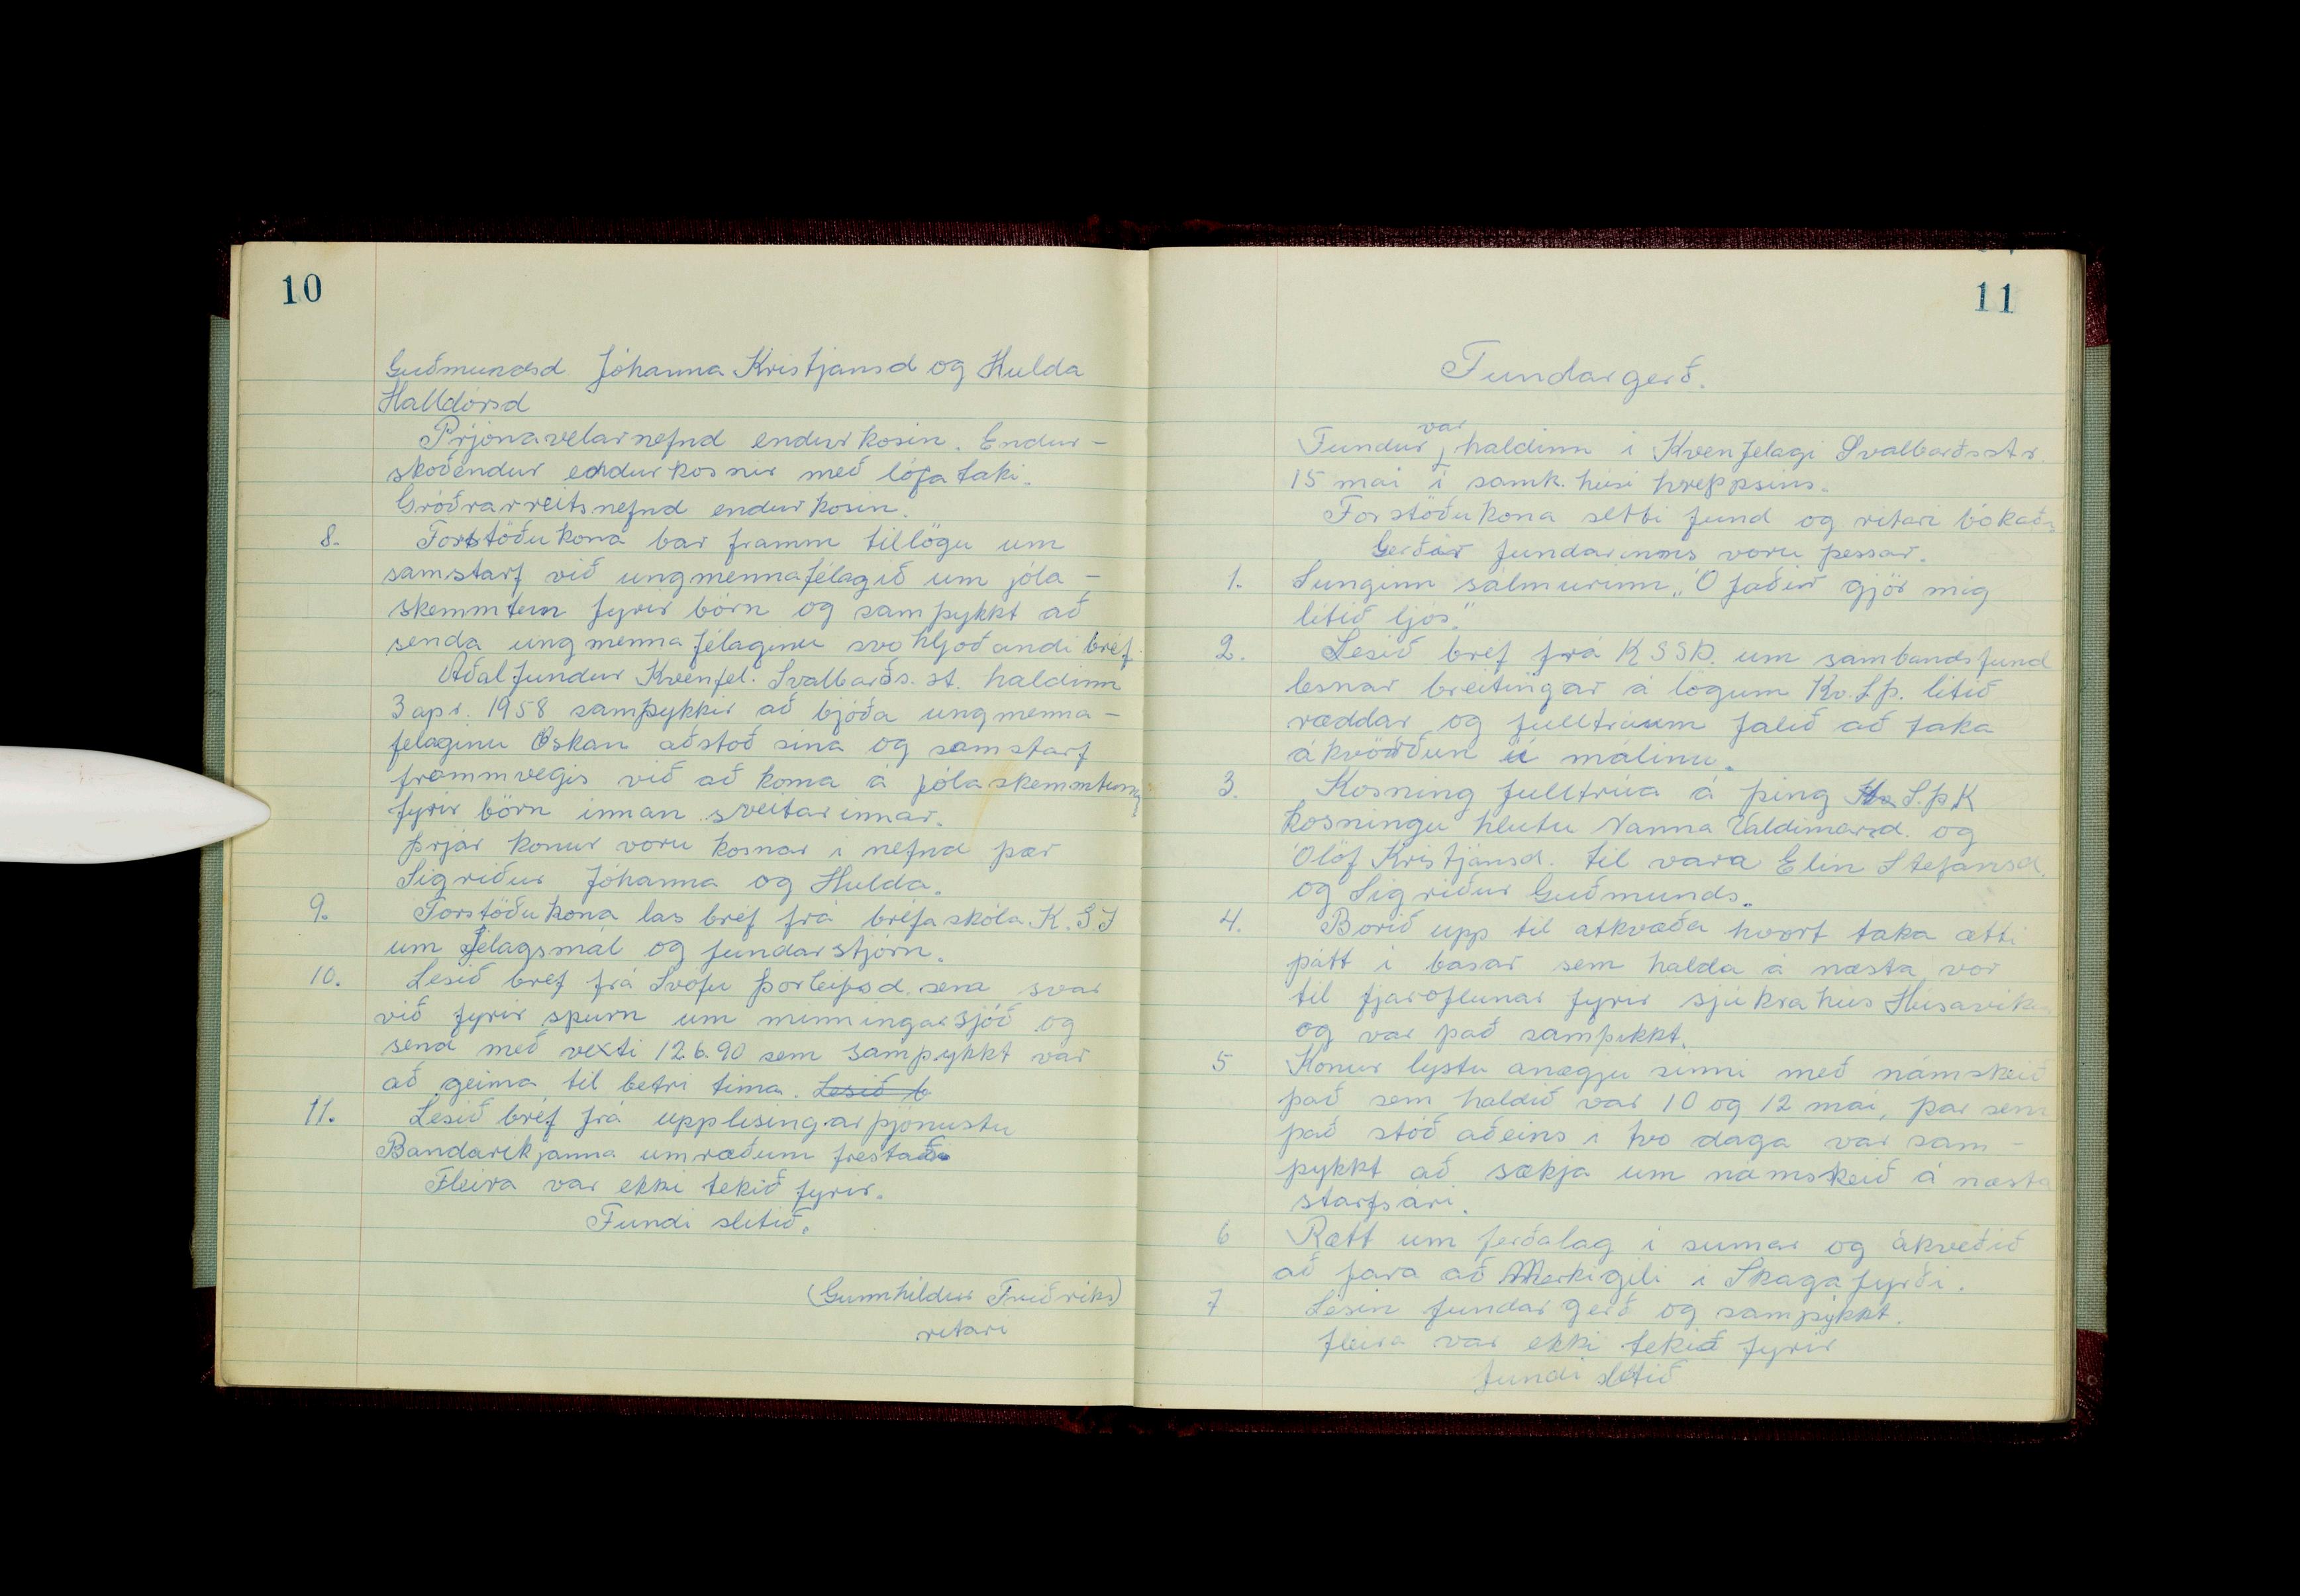 10
Guðmundsd Jóhanna Kristjansd og Hulda
Halldórsd
Prjónavelarnefnd endurkosin. Endur-
skoðendur endurkosnir með lófataki.
Gróðrarreitsnefnd endurkosin.
8. Forstöðukona bar framm tillögu um
samstarf við ungmennafélagið um jóla-
skemmtun fyrir börn og samþykkt að
senda ungmennafélaginu svo hljoðandi bréf.
Aðalfundur Kvenfel. Svalbarðs. st. haldinn
3 apr. 1958 samþykkir að bjóða ungmenna-
felaginu Öskan aðstoð sína og samstarf
frammvegis við að koma á jólaskemmtunn
fyrir börn innan sveitarinnar.
Þrjár konur voru kosnar i nefnd þær
Sigríður Jóhanna og Hulda.
9. Forstöðukona las bréf frá bréfaskóla K. S Í
um félagsmál og fundarstjórn.
10. Lesið bréf frá Svöfu Þorleifsd. sem svar
við fyrir spurn um minningarsjóð og
send með vexti 126.90 sem samþykkt var
að geima til betri tima. Lesið b
11. Lesið bréf frá upplisingarþjónustu
Bandarikjanna umræðum frestað
Fleira var ekki tekið fyrir.
Fundi slitið.
(Gunnhildur Friðriks)
ritari
11
Fundargerð.
var
Fundur haldinn i Kvenfelagi Svalbarðsstr.
15 mai í samk. húsi hreppsins.
Forstöðukona setti fund og ritari bókaði
Gerðir fundarinns voru þessar.
1. Sunginn sálmurinn „Ó faðir gjör mig
litið ljós."
2. Lesið bréf frá K S S Þ. um sambandsfund
lesnar breitingar á lögum Kv. S þ. litið
ræddar og fulltrúum falið að taka
ákvörðun í málinu.
3. Kosning fulltrúa á þing S. þ K
kosningu hlutu Nanna Valdimarsd. og
Ólöf Kristjánsd. til vara Elin Stefánsd.
og Sigriður Guðmunds.
4. Borið upp til atkvæða hvort taka ætti
þátt i basar sem halda á næsta vor
til fjaröflunar fyrir sjúkrahús Húsavik
og var það samþikkt.
5 Konur lystu anægju sinni með námskeið
það sem haldið var 10 og 12 mai, þar sem
það stóð aðeins i tvo daga var sam-
þykkt að sækja um námskeið á næsta
starfsári.
6 Rætt um ferðalag i sumar og ákveðið
að fara að Merkigili i Skagafyrði.
7 Lesin fundargerð og samþykkt.
fleira var ekki tekið fyrir
fundi slitið